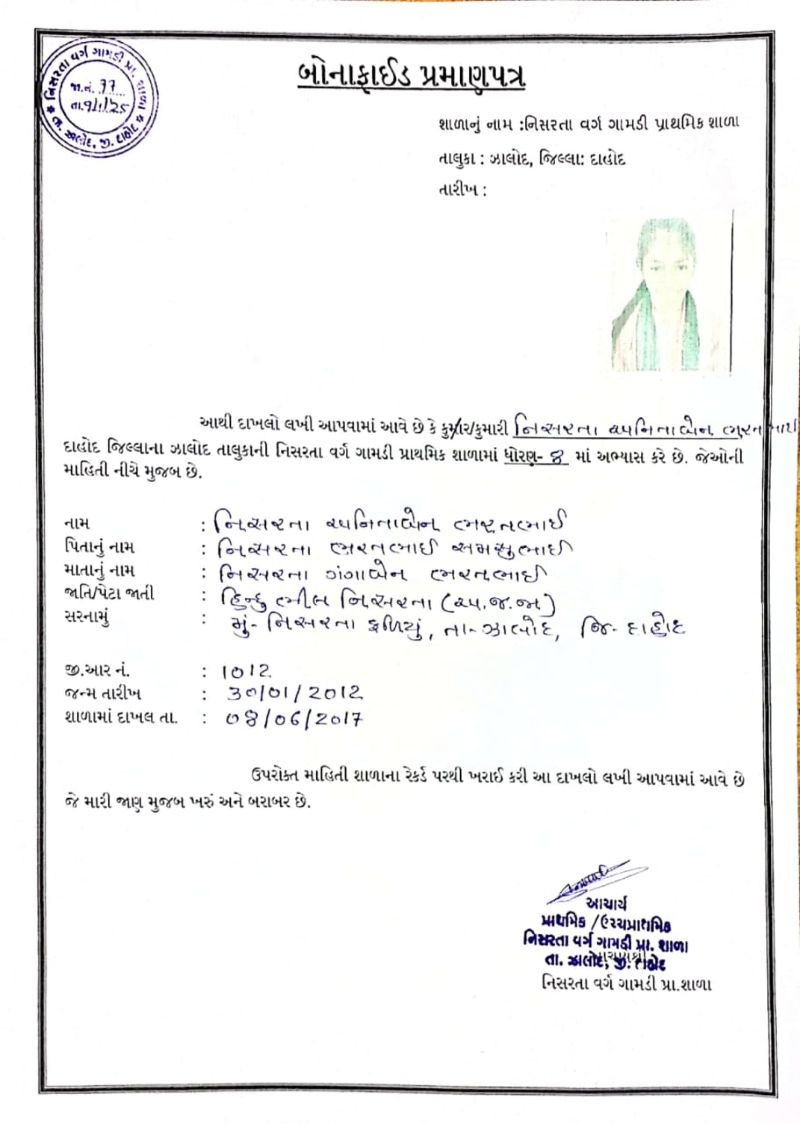 નિસરતા વર્ગ ગામડી પ્રા. શાળા
જા.નં. 77
તા. 9/1/25
તા. ઝાલોદ, જી. દાહોદ
બોનાફાઈડ પ્રમાણપત્ર
શાળાનું નામ :નિસરતા વર્ગ ગામડી પ્રાથમિક શાળા
તાલુકા : ઝાલોદ, જિલ્લા: દાહોદ
તારીખ :
આથી દાખલો લખી આપવામાં આવે છે કે કુમાર/કુમારી નિસરતા અનિતાબેન ભરતભાઈ
દાહોદ જિલ્લાના ઝાલોદ તાલુકાની નિસરતા વર્ગ ગામડી પ્રાથમિક શાળામાં ધોરણ- ૪ માં અભ્યાસ કરે છે. જેઓની
માહિતી નીચે મુજબ છે.
નામ : નિસરતા અનિતાબેન ભરતભાઈ
પિતાનું નામ : નિસરતા ભરતભાઈ સમસુભાઈ
માતાનું નામ : નિસરતા ગંગાબેન ભરતભાઈ
જાતિ/પેટા જાતી : હિન્દુ ભીલ નિસરતા (અ.જ.જા)
સરનામું : મું- નિસરતા ફળિયું, તા-ઝાલોદ, જિ- દાહોદ
જી.આર નં. : 1012
જન્મ તારીખ : 30/01/2012
શાળામાં દાખલ તા. : 08/06/2017
ઉપરોક્ત માહિતી શાળાના રેકર્ડ પરથી ખરાઈ કરી આ દાખલો લખી આપવામાં આવે છે
જે મારી જાણ મુજબ ખરું અને બરાબર છે.
આચાર્ય
પ્રાથમિક /ઉચ્ચપ્રાથમિક
નિસરતા વર્ગ ગામડી પ્રા. શાળા
તા. ઝાલોદ, જી. દાહોદ
નિસરતા વર્ગ ગામડી પ્રા.શાળા